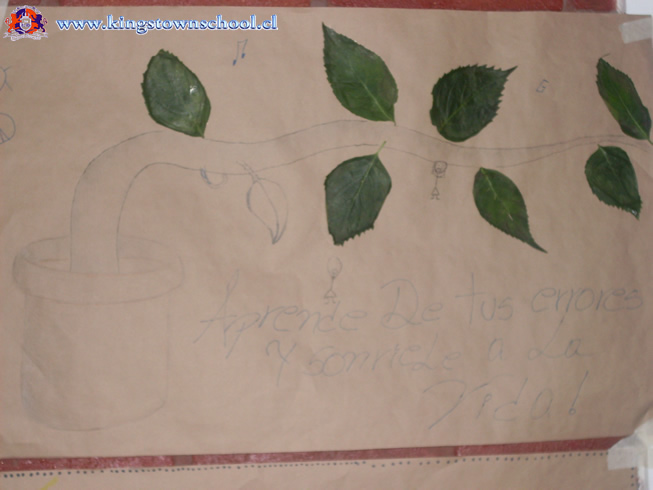 www.kingstownschool.cl
Aprende De tus errores
Y sonriele a La
Vida!